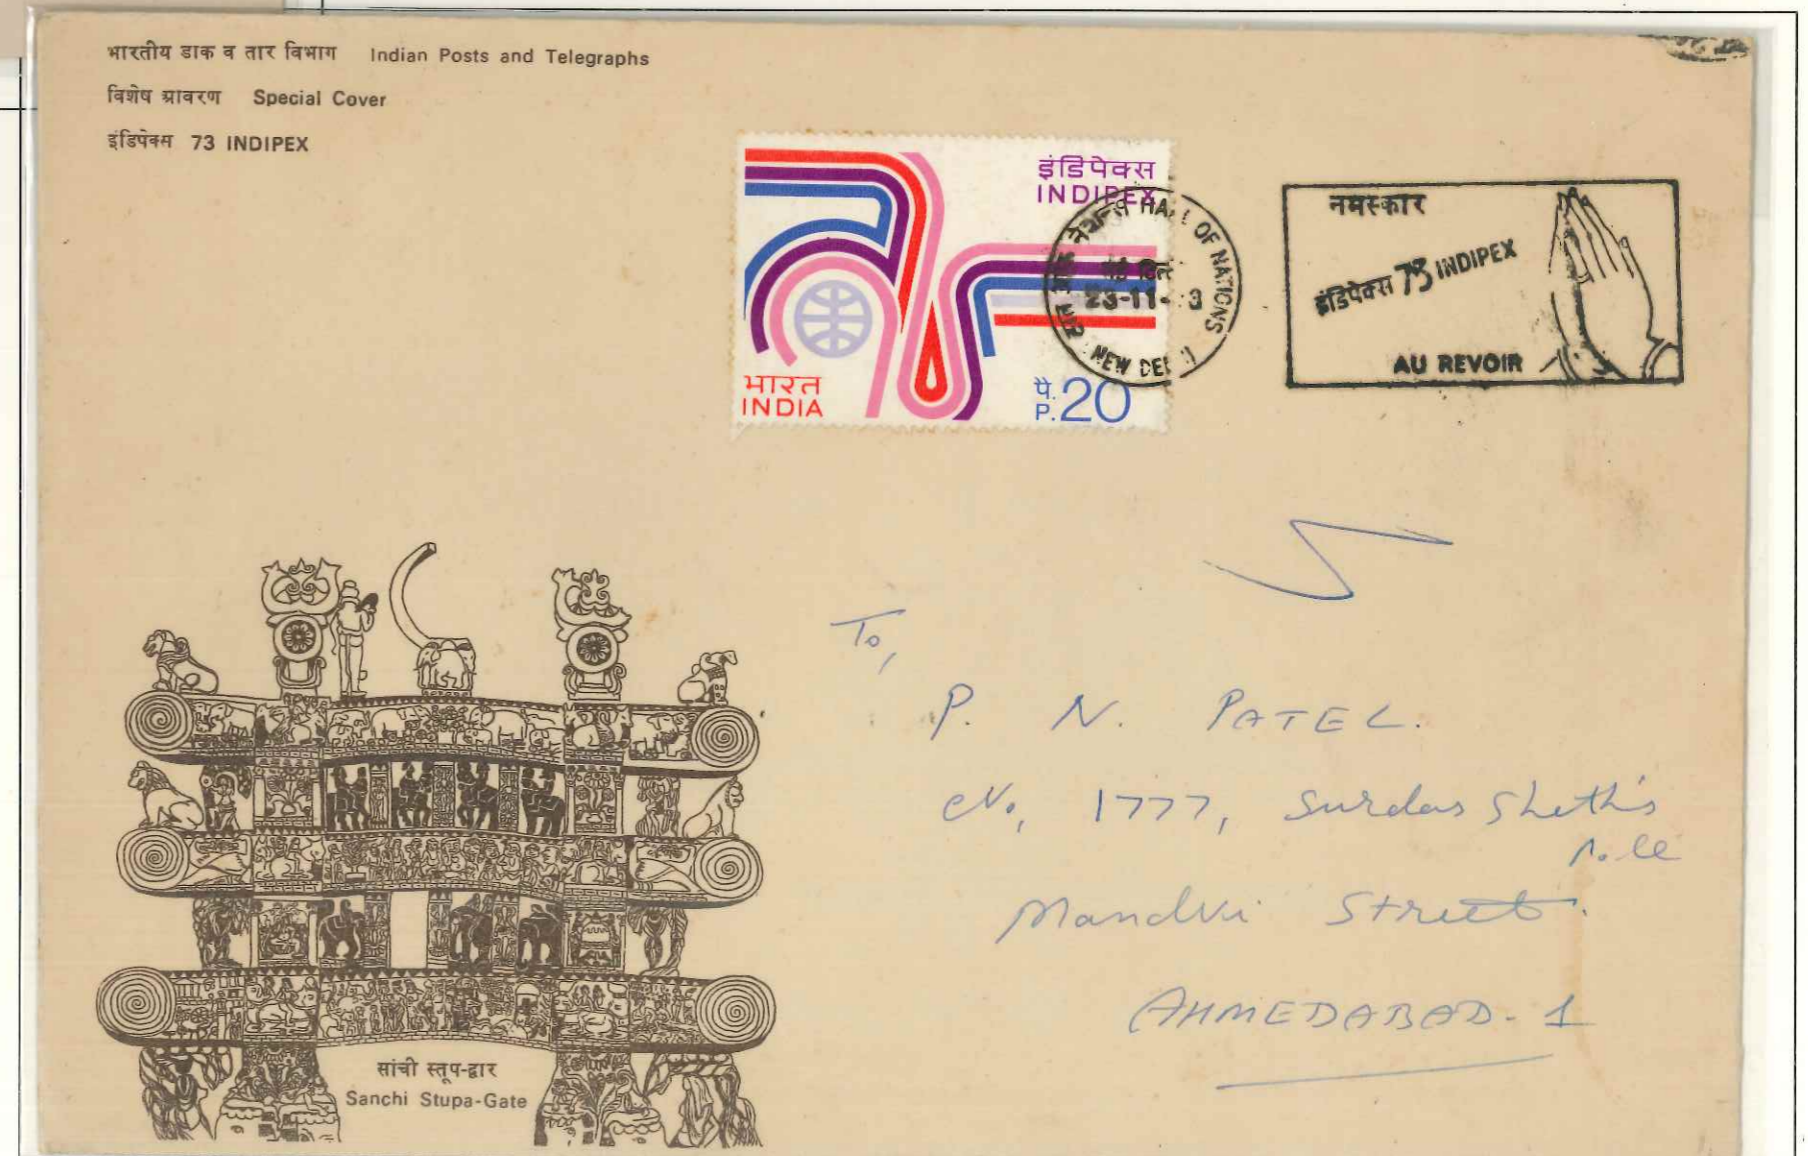 भारतीय डाक व तार विभाग Indian Posts and Telegraphs
विशेष आवरण Special Cover
इंडिपेक्स 73 INDIPEX
इंडिपेक्स
INDIPEX
भारत
INDIA
पै.
P. 20
HALL OF NATIONS
23-11-
NEW DELHI
नमस्कार
इंडिपेक्स 73 INDIPEX
AU REVOIR
To,
P. N. PATEL.
No, 1777, Surdas Sheth's
Mandvi Street.
AHMEDABAD-1
सांची स्तूप-द्वार
Sanchi Stupa-Gate